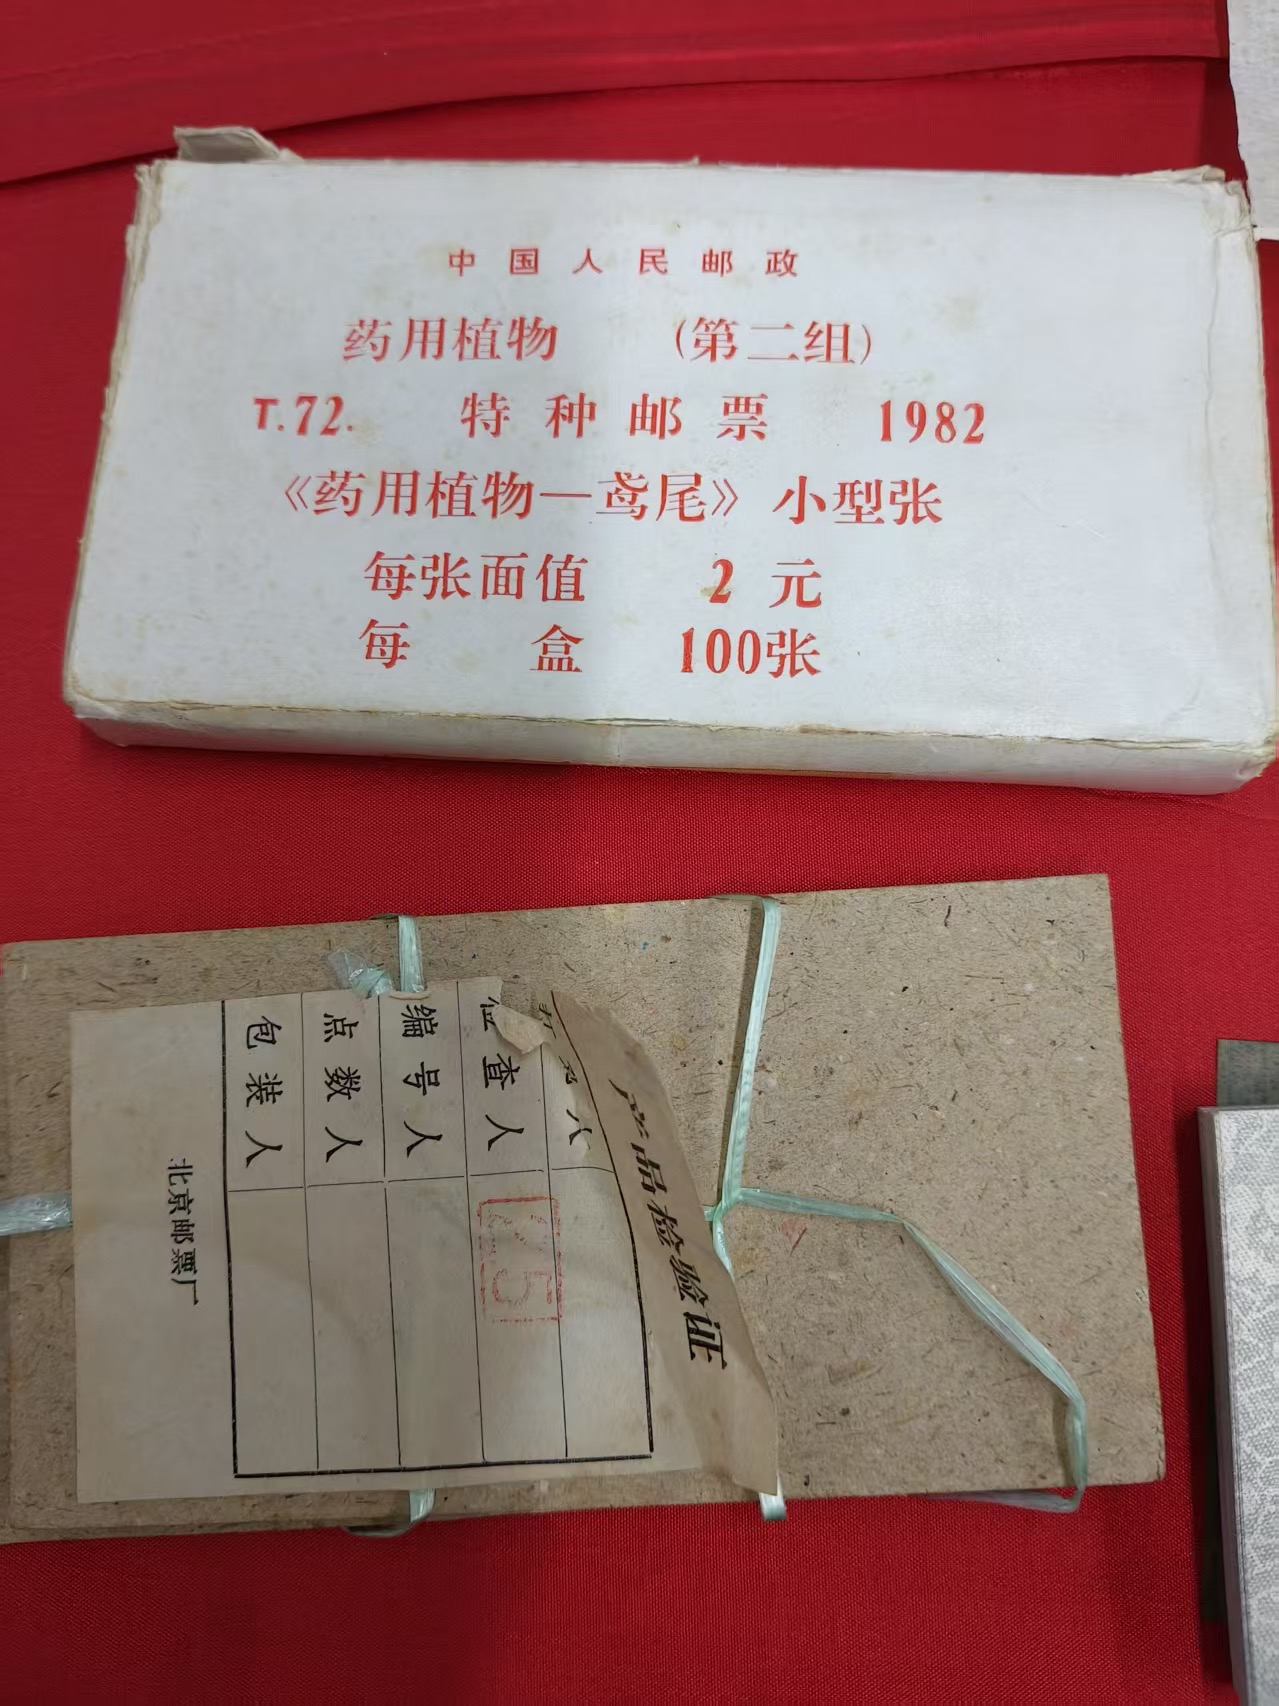 中国人民邮政
药用植物 (第二组)
T.72. 特种邮票 1982
《药用植物—鸢尾》小型张
每张面值 2 元
每 盒 100张
产品检验证
查人
编号人
点数人
包装人
北京邮票厂